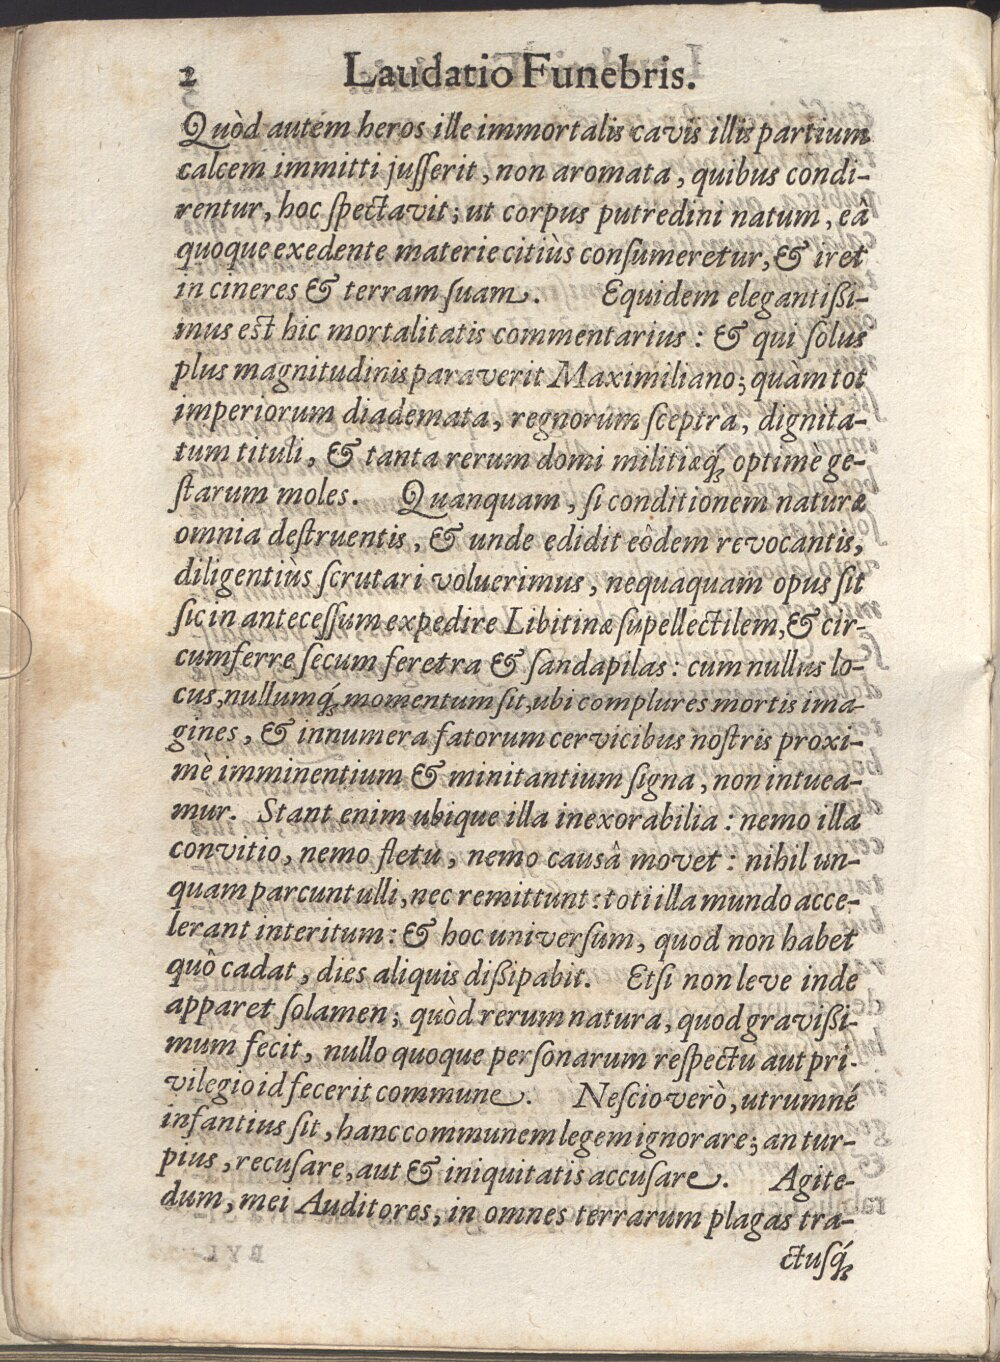 2 Laudatio Funebris.
Quòd autem heros ille immortalis cavis illis partium
calcem immitti juſſerit, non aromata, quibus condi-
rentur, hoc ſpectavit; ut corpus putredini natum, eâ
quoque exedente materie citiùs conſumeretur, & iret
in cineres & terram ſuam. Equidem elegantißi-
mus eſt hic mortalitatis commentarius: & qui ſolus
plus magnitudinis paraverit Maximiliano; quàm tot
imperiorum diademata, regnorum ſceptra, dignita-
tum tituli, & tanta rerum domi militiæq́; optimè ge-
ſtarum moles. Quanquam, ſi conditionem naturæ
omnia deſtruentis, & unde edidit eôdem revocantis,
diligentiùs ſcrutari voluerimus, nequaquam opus ſit
ſic in anteceſſum expedire Libitinæ ſupellectilem, & cir-
cumferre ſecum feretra & ſandapilas: cum nullus lo-
cus, nullumq́; momentum ſit, ubi complures mortis ima-
gines, & innumera fatorum cervicibus noſtris proxi-
mè imminentium & minitantium ſigna, non intuea-
mur. Stant enim ubique illa inexorabilia: nemo illa
convitio, nemo fletu, nemo causâ movet: nihil un-
quam parcunt ulli, nec remittunt: toti illa mundo acce-
lerant interitum: & hoc univerſum, quod non habet
quô cadat, dies aliquis dißipabit. Etſi non leve inde
apparet ſolamen; quòd rerum natura, quod gravißi-
mum fecit, nullo quoque perſonarum reſpectu aut pri-
vilegio id fecerit commune. Neſcio verò, utrumné
infantius ſit, hanc communem legem ignorare; an tur-
pius, recuſare, aut & iniquitatis accuſare. Agite-
dum, mei Auditores, in omnes terrarum plagas tra-
ctuſq́;